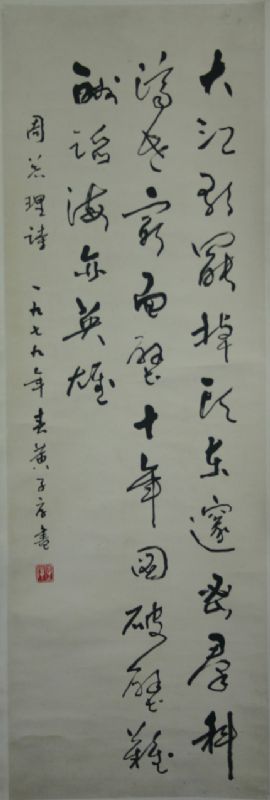 大江歌罢掉头东邃密群科
济世穷面壁十年图破壁难
酬蹈海亦英雄
周总理诗 一九七九年春黄子厚书